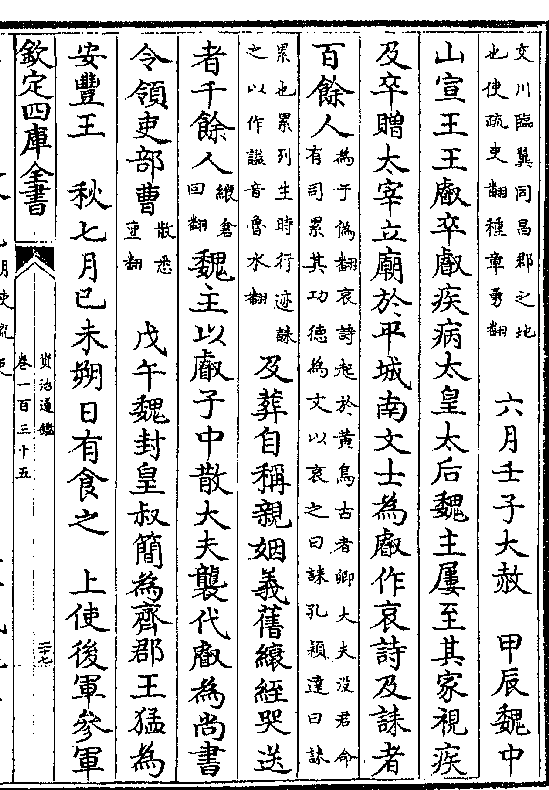 交川臨翼同昌郡之地
也使疏吏翻種章勇翻
六月壬子大赦　甲辰魏中
山宣王王叡卒叡疾病太皇太后魏主屢至其家視疾
及卒贈太宰立廟於平城南文士為叡作哀詩及誄者
百餘人
為于偽翻哀詩起於黃鳥古者卿大夫沒君命
有司累其功德為文以哀之曰誄孔穎達曰誄
累也累列生時行迹誄
之以作諡音魯水翻
及葬自稱親姻義舊縗絰哭送
者千餘人
縗倉
回翻
魏主以叡子中散大夫襲代叡為尚書
令領吏部曹
散悉
亶翻
戊午魏封皇叔簡為齊郡王猛為
安豐王　秋七月己未朔日有食之　上使後軍參軍
欽定四庫全書
資治通鑑
卷一百三十五